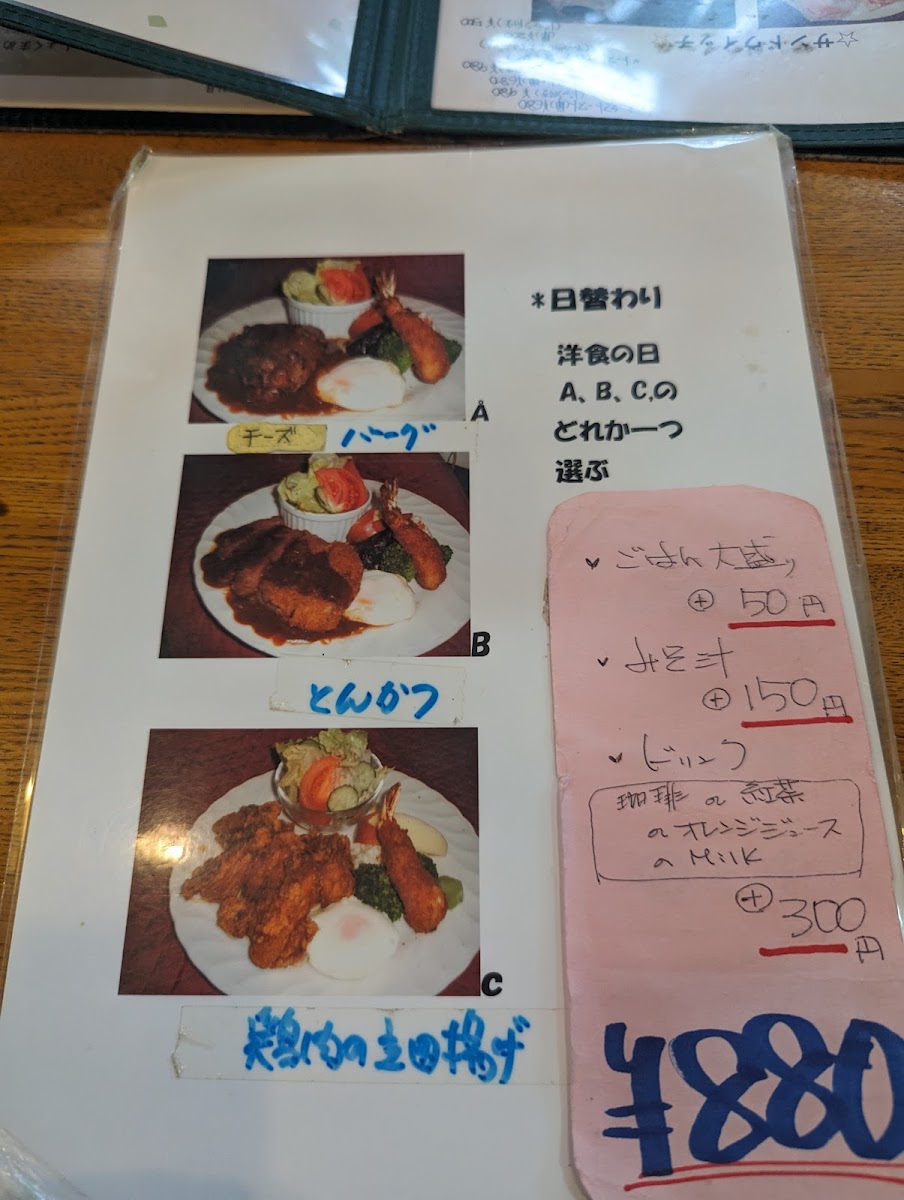 ☆サンドウィッチ☆
*日替わり
洋食の日
A、B、C,の
どれか一つ
選ぶ
A
チーズ バーグ
B
とんかつ
C
鶏肉の立田揚げ
ごはん大盛り
+ 50円
みそ汁
+ 150円
ドリンク
珈琲 の 紅茶
の オレンジジュース
の Milk
+ 300円
¥880